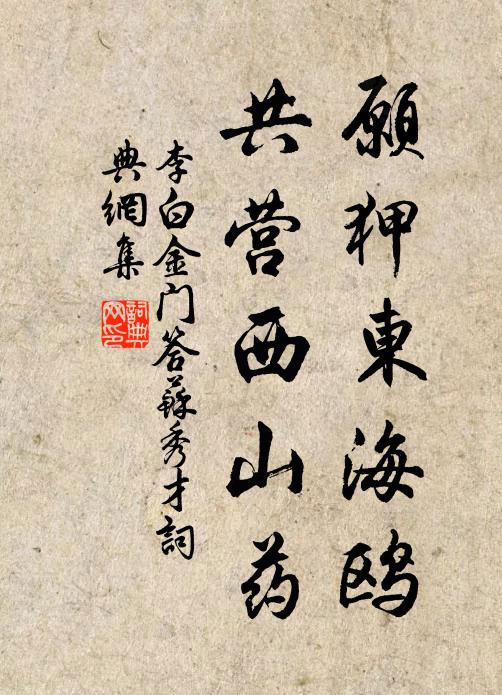 願狎東海鸥
共营西山药
李白金门答蘇秀才詞
典網集
詞典
网印